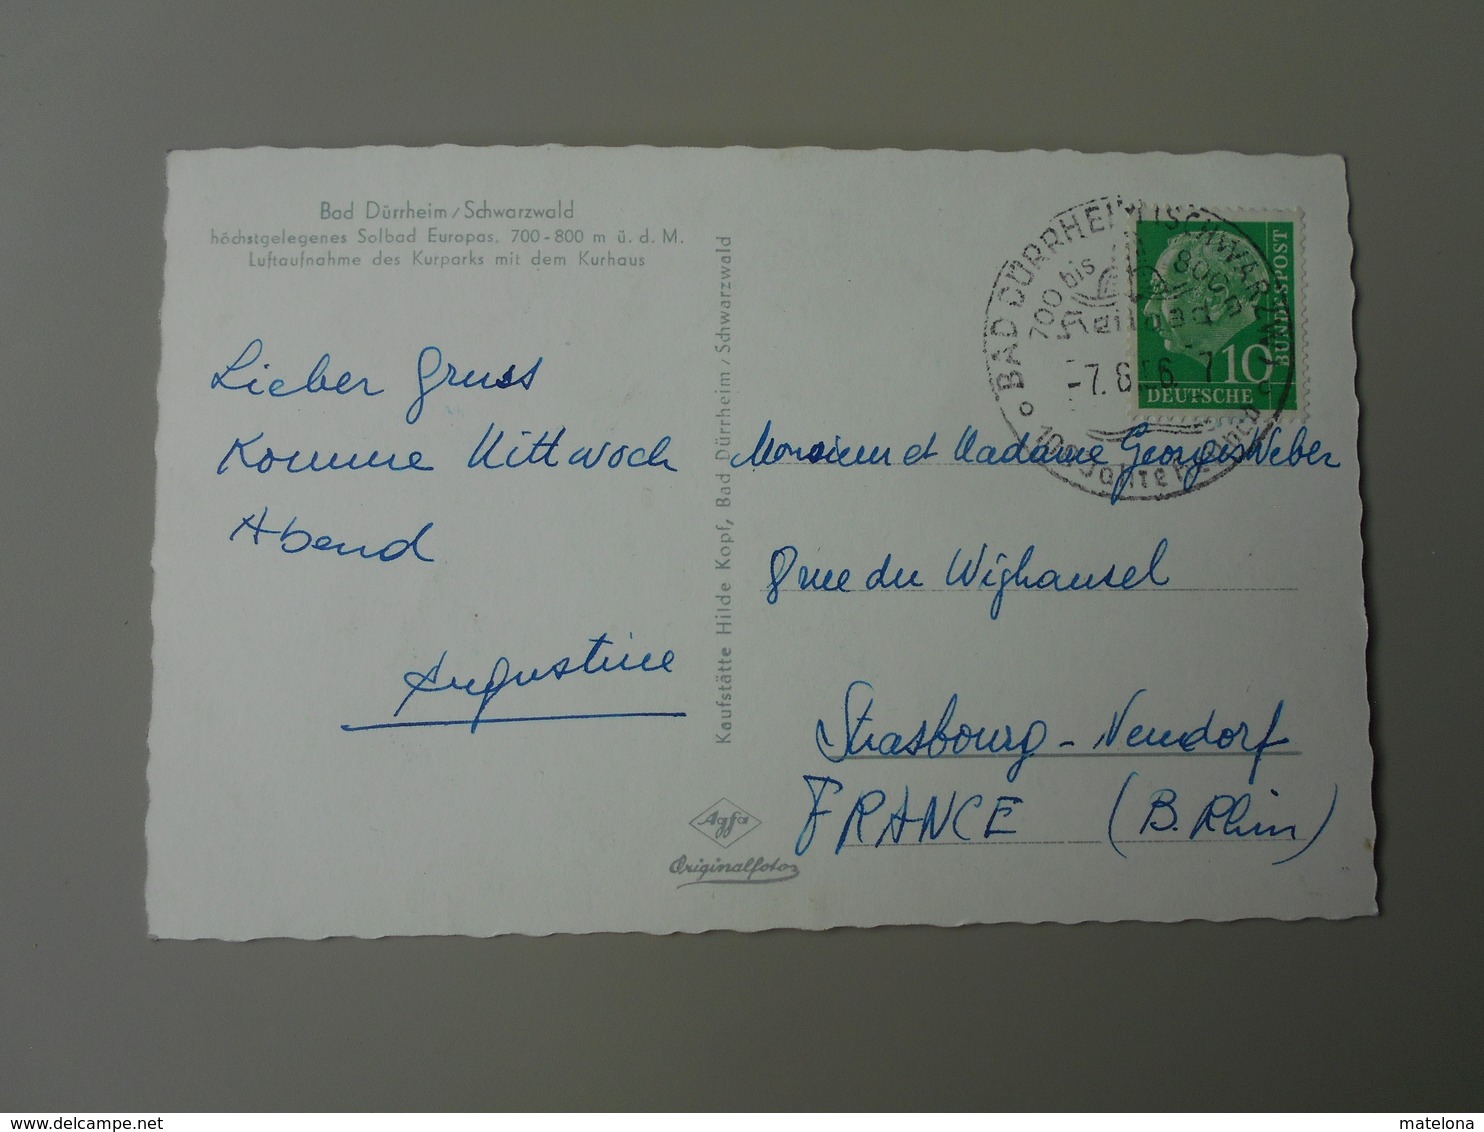 Bad Dürrheim/Schwarzwald
höchstgelegenes Solbad Europas, 700-800 m ü. d. M.
Luftaufnahme des Kurparks mit dem Kurhaus
Lieber Gruss
Komme Mittwoch
Abend
Augustine
Kaufstätte Hilde Kopf, Bad Dürrheim/Schwarzwald
Agfa
Originalfoto
BAD DÜRRHEIM (SCHWARZW
700 bis 800 m
Heilbad
-7.6.56.-7
DEUTSCHE
BUNDESPOST
10
Monsieur et Madame Georges Weber
8 rue du Wighausel
Strasbourg - Neudorf
FRANCE (B. Rhin)
delcampe.net
matelona